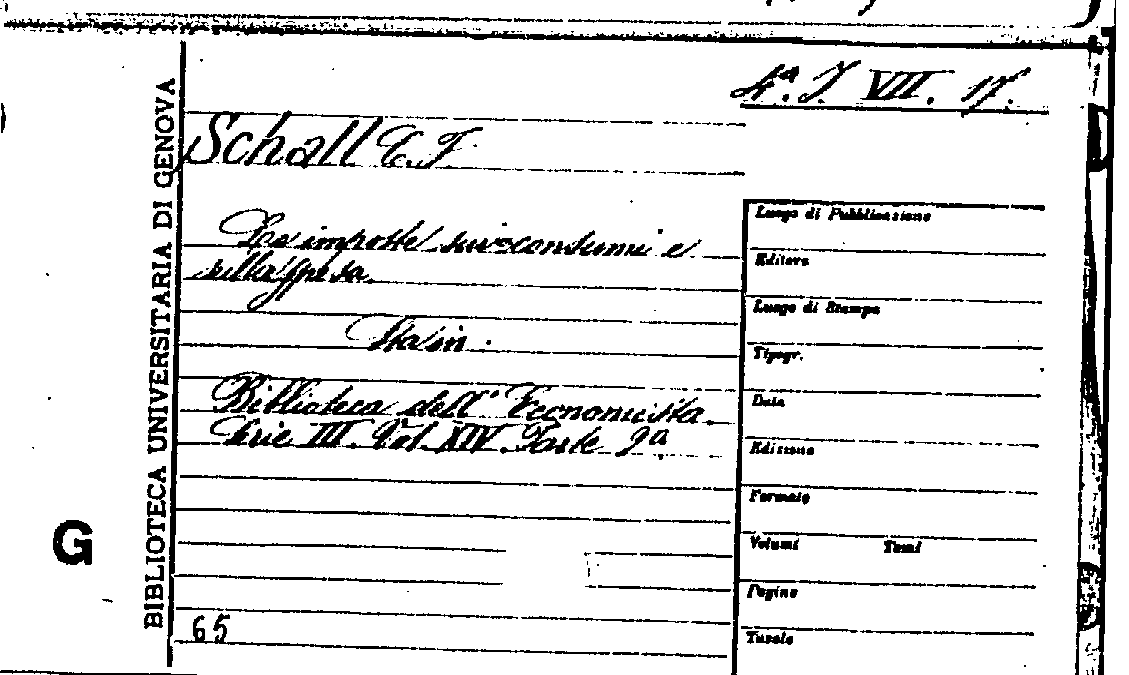 4ª. J. VII. 17.
Schall C. F.
Le imposte sui consumi e
sulla spesa.
Sta in.
Biblioteca dell' Economista.
Serie III. Vol. XIV. Parte 2ª
65
BIBLIOTECA UNIVERSITARIA DI GENOVA
G
Luogo di Pubblicazione
Editore
Luogo di Stampa
Tipogr.
Data
Edizione
Formato
Volumi Tomi
Pagine
Tavole